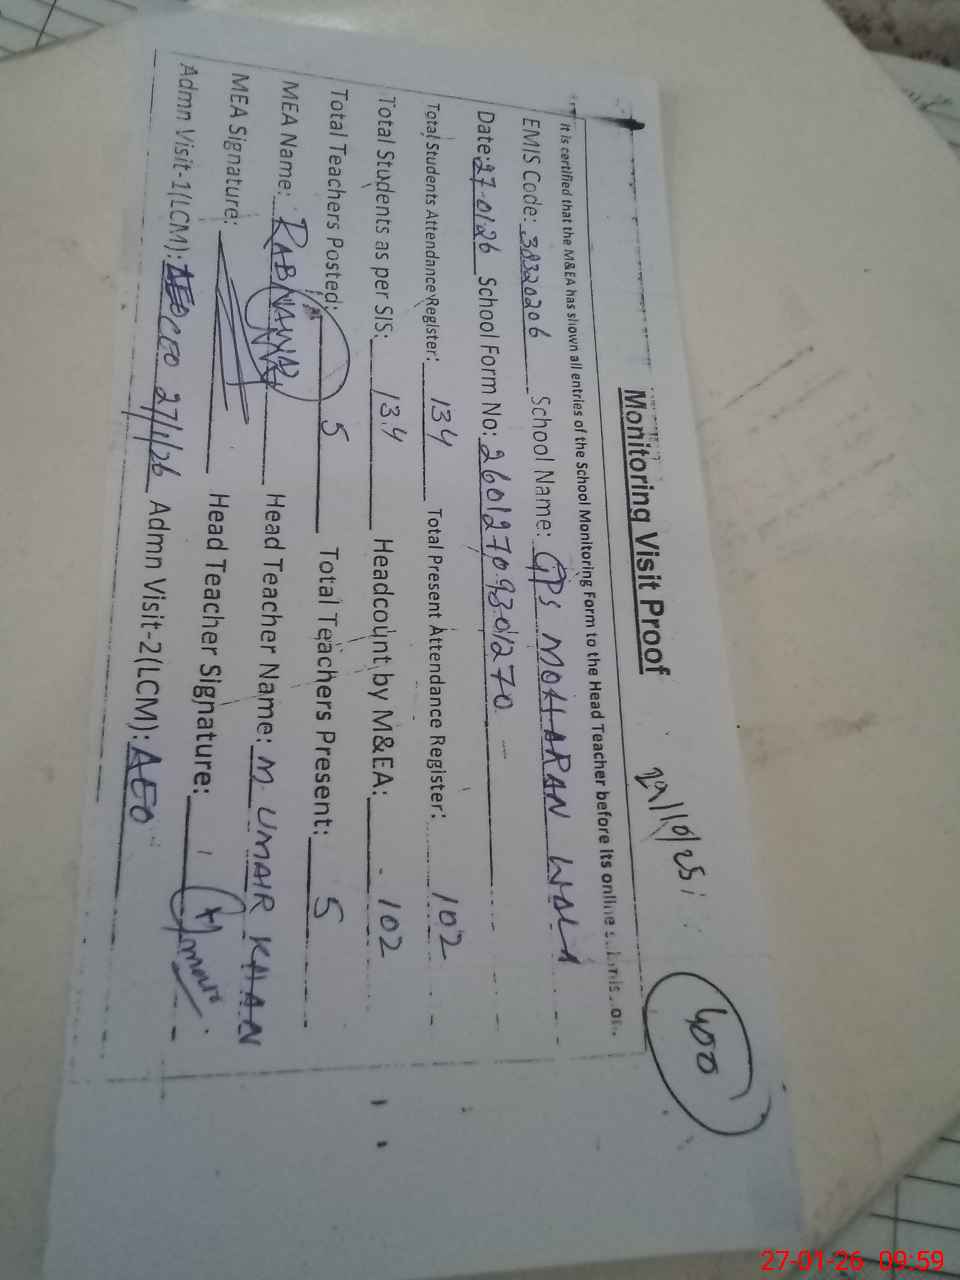 Monitoring Visit Proof
29/10/25
400
It is certified that the M&EA has shown all entries of the School Monitoring Form to the Head Teacher before its online
EMIS Code: 38320206 School Name: GPS MOHARAN WALA
Date: 27-01-26 School Form No: 26012709301270
Total Students Attendance Register: 134 Total Present Attendance Register: 102
Total Students as per SIS: 134 Headcount by M&EA: 102
Total Teachers Posted: 5 Total Teachers Present: 5
MEA Name: RABNAWAZ Head Teacher Name: M. UMAIR KHAN
MEA Signature: Head Teacher Signature:
Admn Visit-1(LCM): CEO 27/1/26 Admn Visit-2(LCM): AEO
27-01-26 09:59